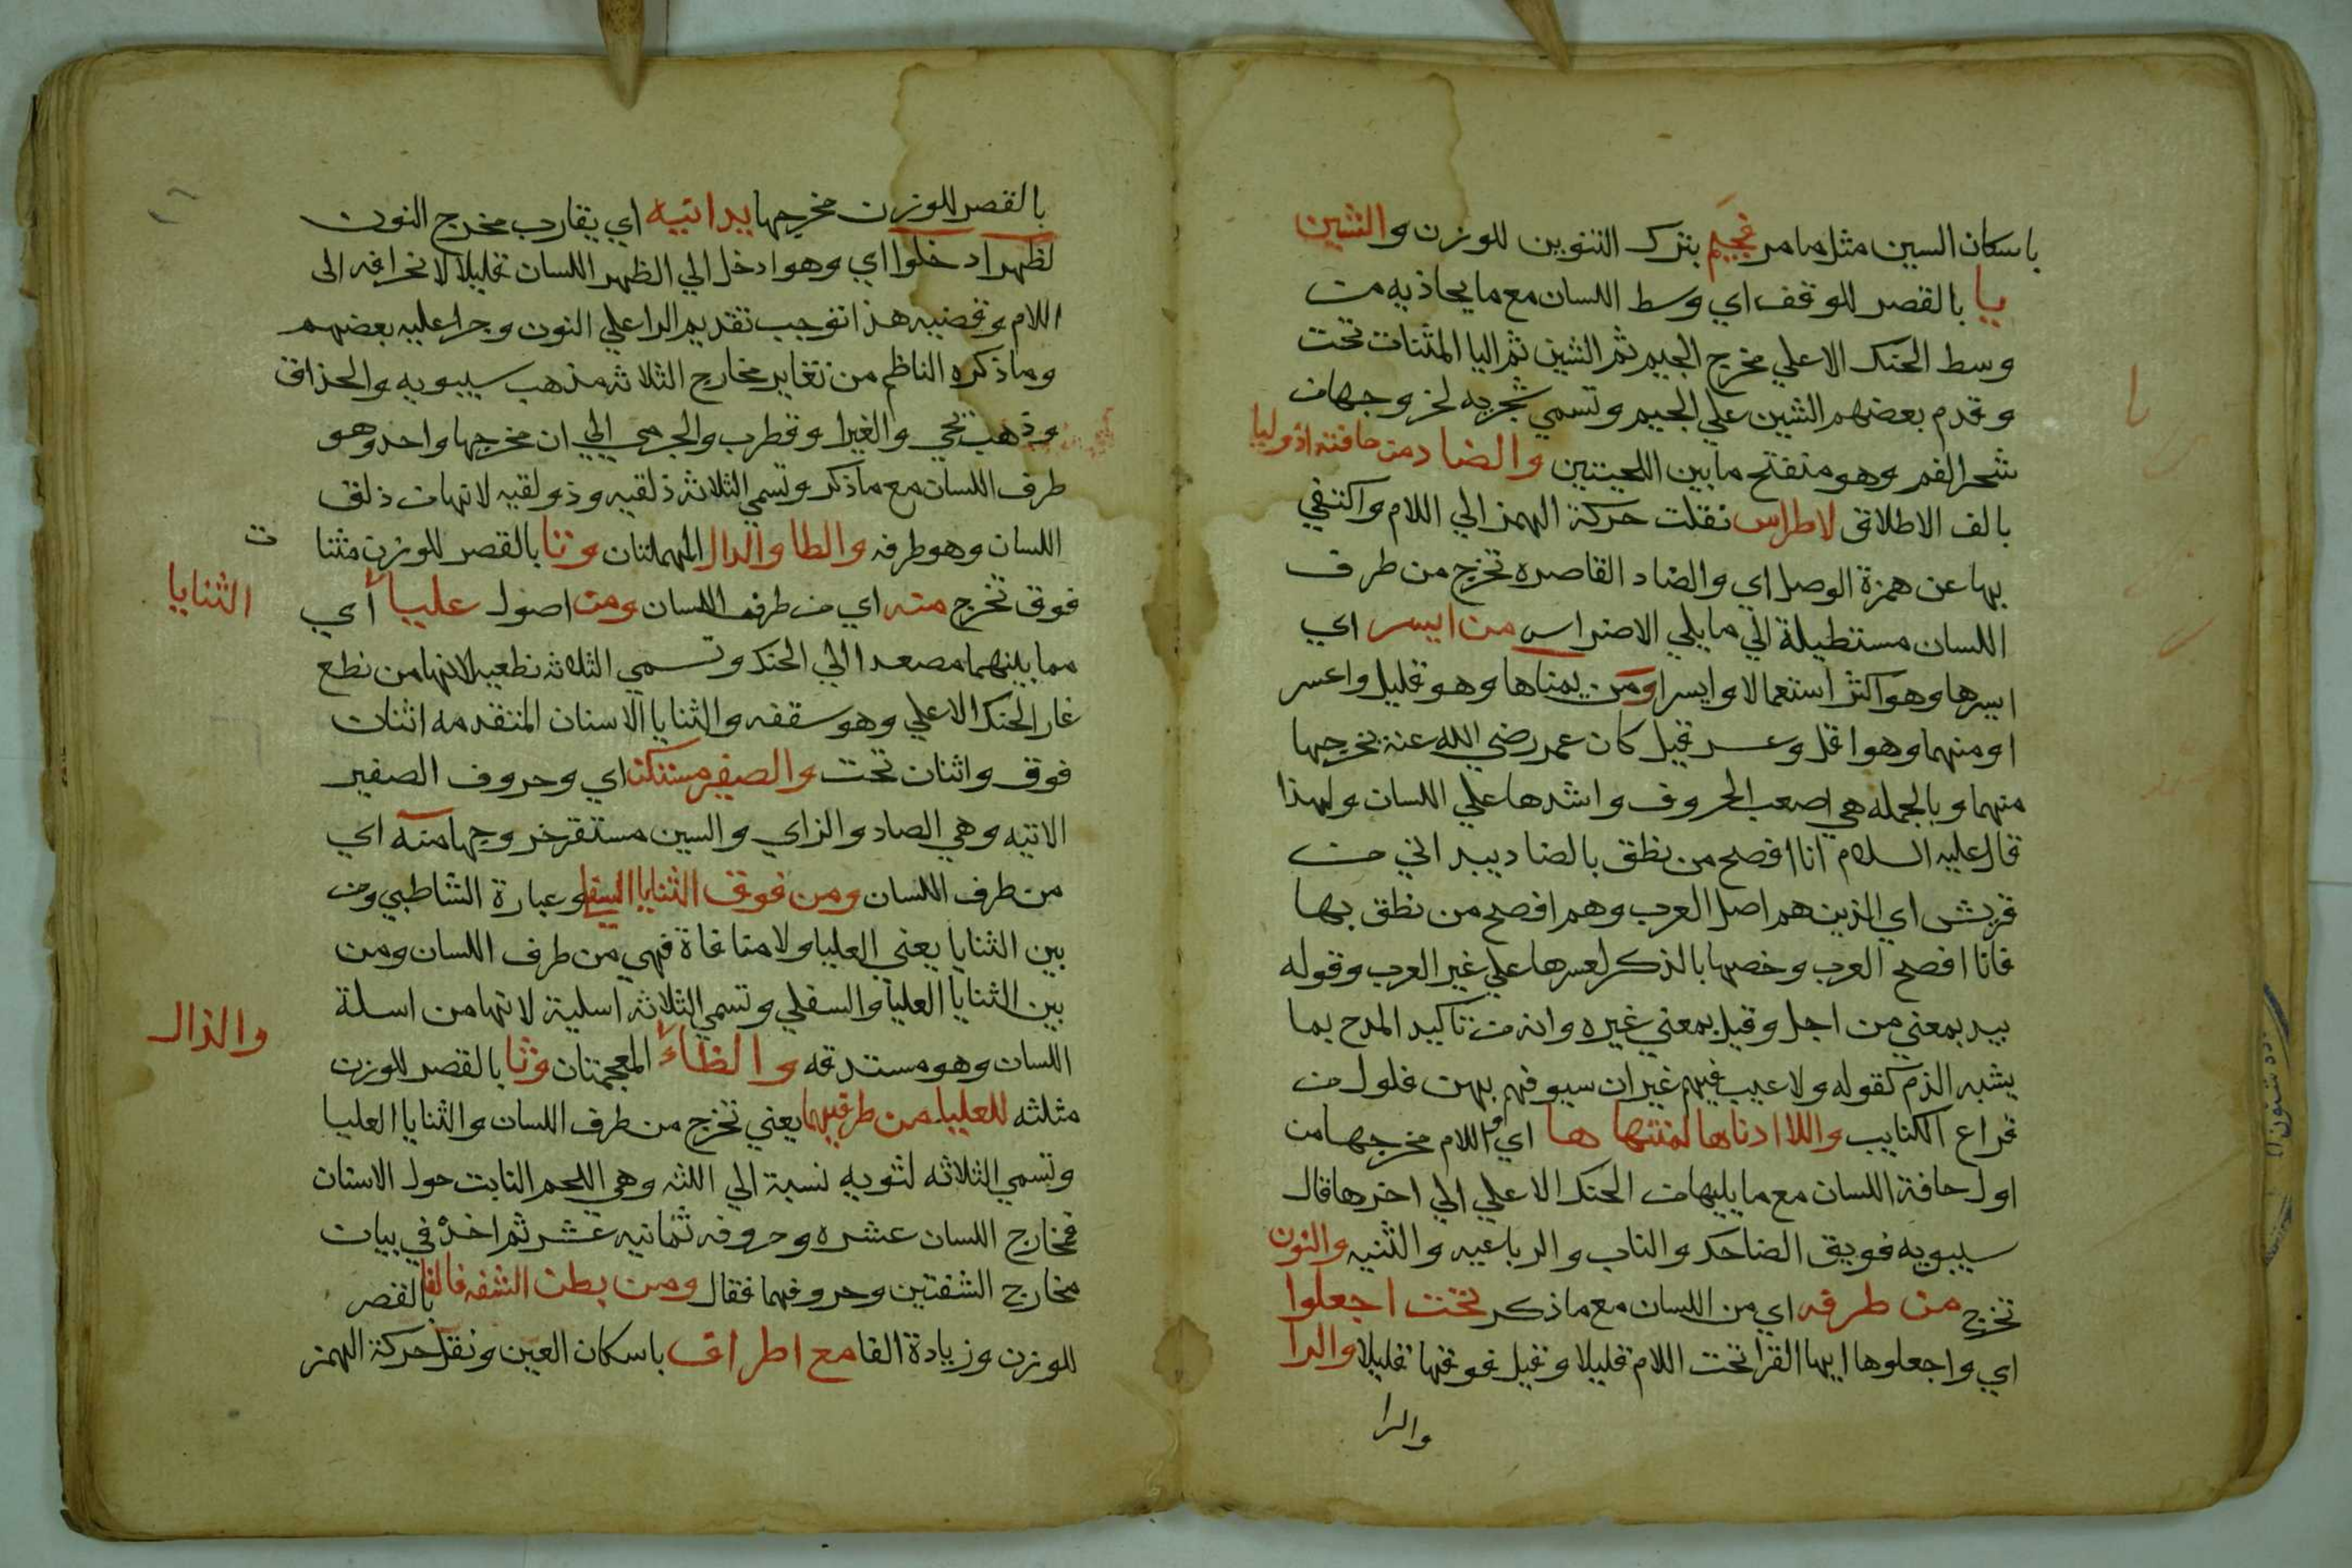 باسكان السين مثل ما مر فجيم بترك التنوين للوزن والشين
يا بالقصر للوقف اي وسط اللسان مع ما يحاذيه من
وسط الحنك الاعلي مخرج الجيم ثم الشين ثم اليا المثنات تحت
وقدم بعضهم الشين علي الجيم وتسمي شجريه لخروجها من
شجر الفم وهو منفتح ما بين اللحيتين والضاد من حافته اذ وليا
بالف الاطلاق لاطراس نقلت حركة الهمز الي اللام واكتفي
بها عن همزة الوصل اي والضاد القاصره تخرج من طرف
اللسان مستطيلة الي ما يلي الاضراس من ايسر اي
ايسرها وهو اكثر استعمالا وايسر اومن يمناها وهو قليل واعسر
او منهما وهو اقل وعسر قيل كان عمر رضي الله عنه يخرجها
منهما وبالجمله هي اصعب الحروف واشدها علي اللسان ولهذا
قال عليه السلام انا افصح من نطق بالضاد بيد اني من
قريش اي الذين هم اصل العرب وهم افصح من نطق بها
فانا افصح العرب وخصها بالذكر لعسرها علي غير العرب وقوله
بيد بمعني من اجل وقيل بمعني غيره وانه من تاكيد المدح بما
يشبه الذم كقوله ولا عيب فيهم غير ان سيوفهم بهن فلول من
قراع الكتايب واللا ادناها لمنتهاها اي واللام مخرجها من
اول حافة اللسان مع ما يليها من الحنك الاعلي الي اخرها قال
سيبويه فويق الضاحك والناب والرباعيه والثنيه والنون
تخرج من طرفه اي من اللسان مع ما ذكر تحت اجعلوا
اي واجعلوها ايها القرا تحت اللام قليلا وقيل فوقها قليلا والرا
والرا
بالقصر للوزن مخرجها يدانيه اي يقارب مخرج النون
لظهر ادخلوا اي وهو ادخل الي الظهر اللسان قليلا لانحرافه الى
اللام وقضيه هذا توجب تقديم الرا علي النون وجرا عليه بعضهم
وما ذكره الناظم من تغاير مخارج الثلاثه مذهب سيبويه والحذاق
وذهب يحي والفرا وقطرب والجرمي الي ان مخرجها واحد وهو
طرف اللسان مع ما ذكر وتسمي الثلاثه ذلقيه وذولقيه لانها من ذلق
اللسان وهو طرفه والطا والدال المهملتان وتا بالقصر للوزن مثنا ت
فوق تخرج منه اي من طرف اللسان ومن اصول عليا أي الثنايا
مما بينهما مصعدا الي الحنك وتسمي الثلاثه نطعيه لانها من نطع
غار الحنك الاعلي وهو سقفه والثنايا الاسنان المتقدمه اثنات
فوق واثنان تحت والصفير مستكن اي وحروف الصفير
الاتيه وهي الصاد والزاي والسين مستقر خروجها منه اي
من طرف اللسان ومن فوق الثنايا السفلي وعبارة الشاطبي ومن
بين الثنايا يعني العليا ولا منافاة فهي من طرف اللسان ومن
بين الثنايا العليا والسفلي وتسمي الثلاثه اسلية لانها من اسلة
اللسان وهو مستدقه والظاء والذال المعجمتان وثا بالقصر للوزن
مثلثه للعليا من طرفيهما يعني تخرج من طرف اللسان والثنايا العليا
وتسمي الثلاثه لثويه نسبة الي اللثه وهي اللحم النابت حول الاسنان
فمخارج اللسان عشره وحروفه ثمانيه عشر ثم اخذ في بيان
مخارج الشفتين وحروفهما فقال ومن بطن الشفه فالفا بالقصر
للوزن وزيادة الفا مع اطراف باسكان العين ونقل حركة الهمز